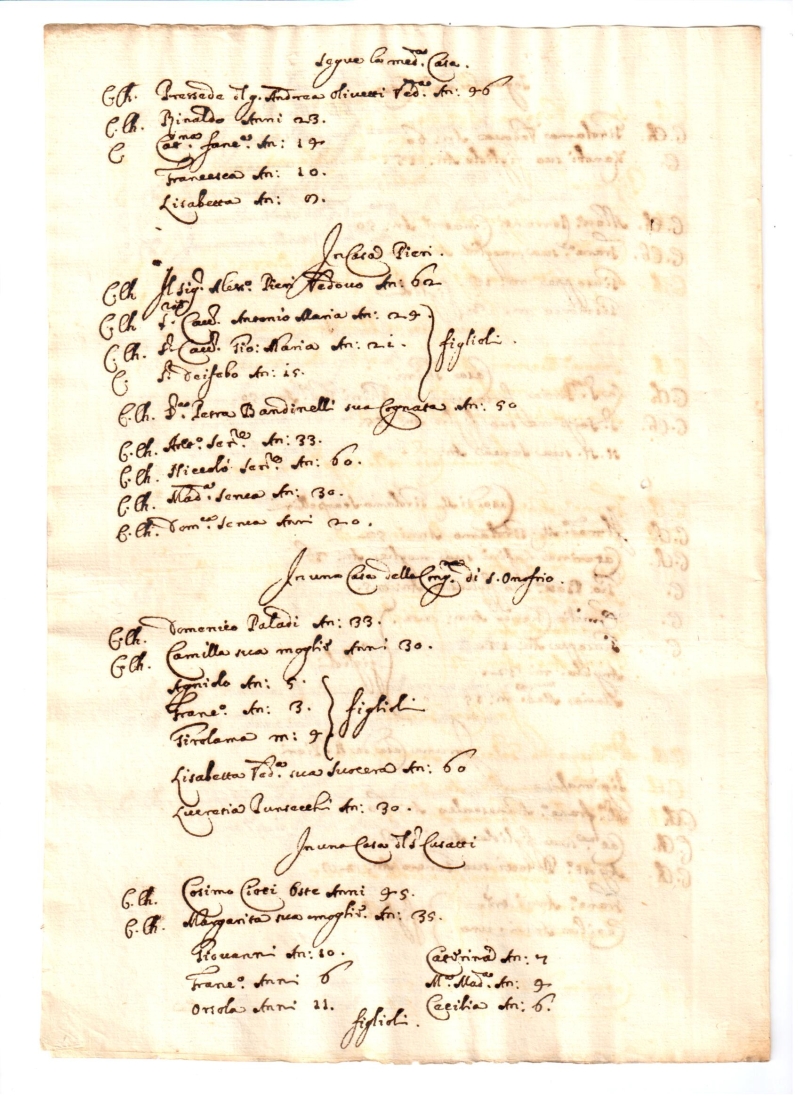 segue la med.ª Casa.
C.Ch. Pressede d'l g. Andrea Olivetti Ved.ª An: 46
C.Ch. Rinaldo Anni 23.
C. Cat.ª An: 14
Francesca An: 10.
Lisabetta An: 8.
In Casa Pieri.
C.Ch. Il Sig. Aless.º Pieri Vedovo An: 62
C.Ch. S.r Cav.r Antonio Maria An: 24.
C.Ch. S.r Cav.r Gio: Maria An: 21. figlioli.
C. S.r Deifebo An: 15.
C.Ch. Petra Bandinelli sua Cognata An: 50
C.Ch. Ser.re An: 33.
C.Ch. Niccolò Ser.re An: 60.
C.Ch. Mad.ª Senca An: 30.
C.Ch. Dom.ca Senca Anni 20.
In una Casa della Cong.ne di S. Onofrio.
C.Ch. Domenico Paladi An: 33.
C.Ch. Camilla sua moglie Anni 30.
Agniolo An: 5.
Franc.º An: 3. figlioli
Girolama m: 4
Lisabetta Ved.ª sua Suocera An: 60
Lucretia An: 30.
In una Casa d'l S.r Cusatti
C.Ch. Cosimo Cioci Oste Anni 45.
C.Ch. Margarita sua moglie An: 35.
Giovanni An: 10. Caterina An: 7
Franc.º Anni 6 M.ª Mad.ª An: 4
Orsola Anni 11. Cecilia An: 6.
figlioli.